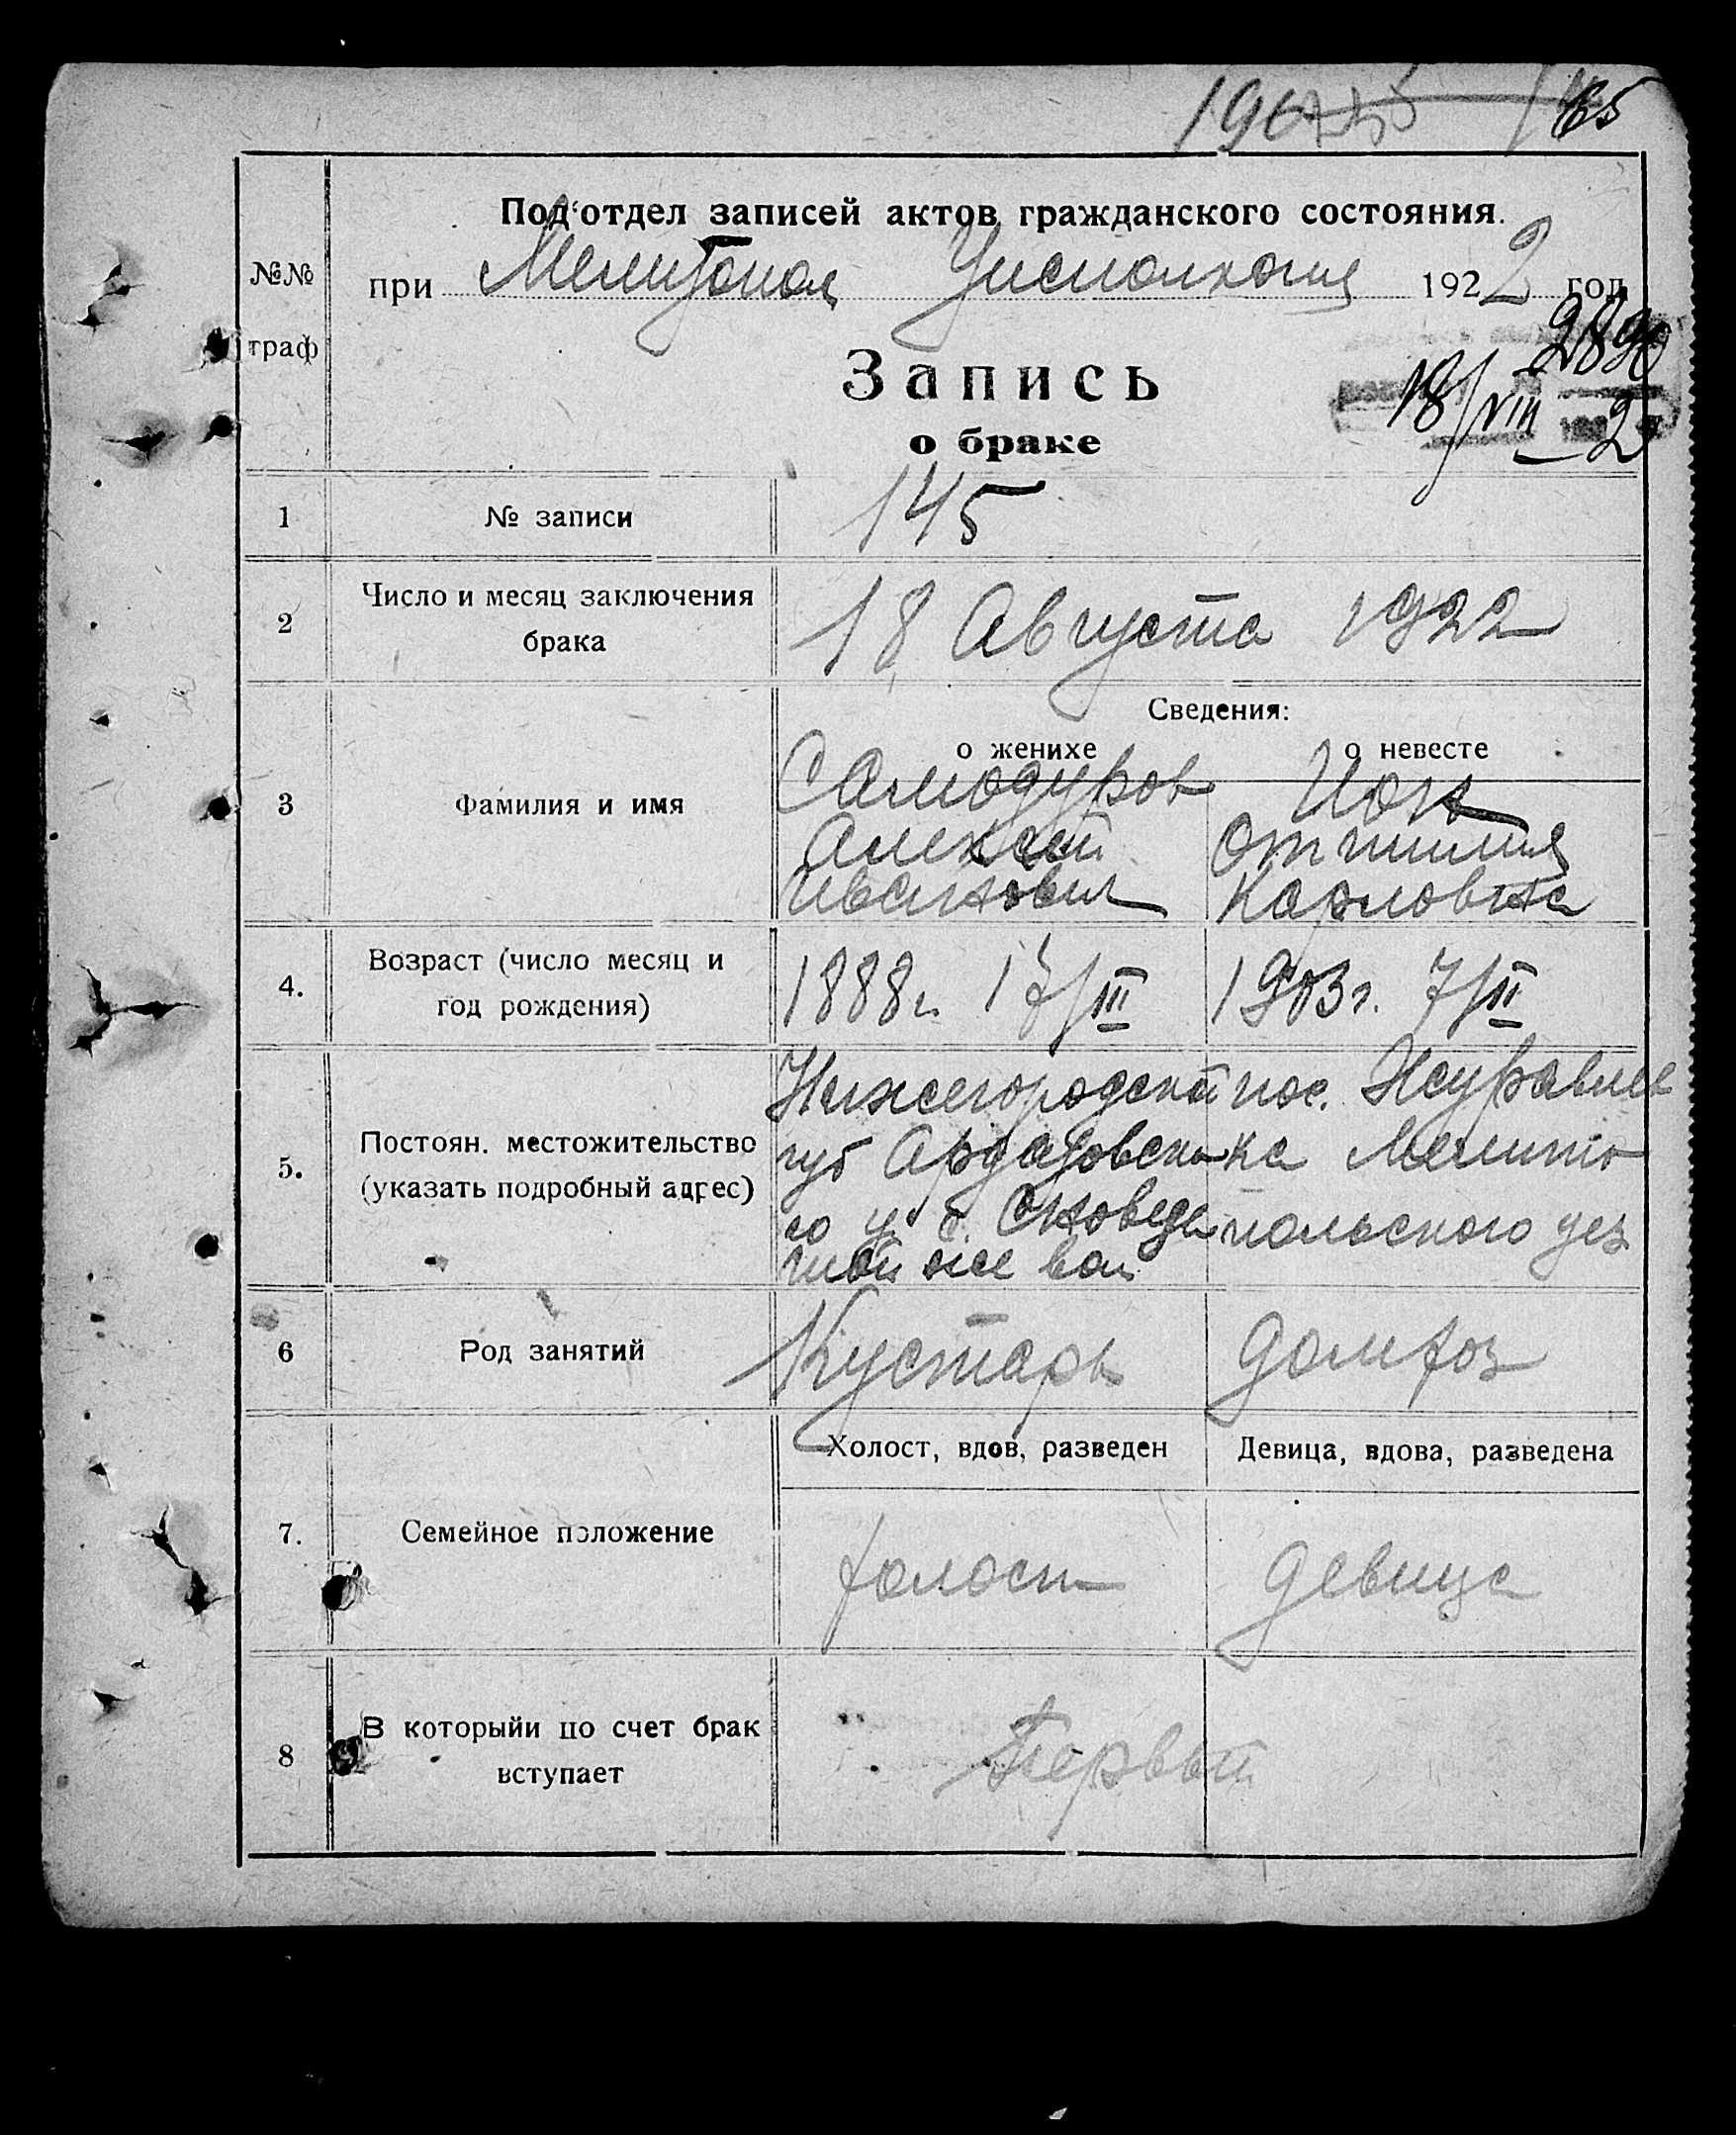 65
Под‘отдел записей актов гражданского состояния.
№№
граф
при Мелитопол Уисполкоме 1922 год
2890
18/VIII 2
Запись
о браке
1 № записи 145
2 Число и месяц заключения
брака
18 Августа 1922
Сведения:
о женихе о невесте
3 Фамилия и имя
Самодуров
Алексей
Иванович
Карловна
4. Возраст (число месяц и
год рождения)
1888 г. 17/III 1903 г. 7/II
5. Постоян. местожительство
(указать подробный адрес)
Нижегородской
губ Ардатовско
го у. с.
той же вол
пос. Журавлев
ка Мелито
польского уез
6 Род занятий Кустарь домхоз
Холост, вдов, разведен Девица, вдова, разведена
7. Семейное положение холост девица
8 В которыйи по счет брак
вступает
Первый